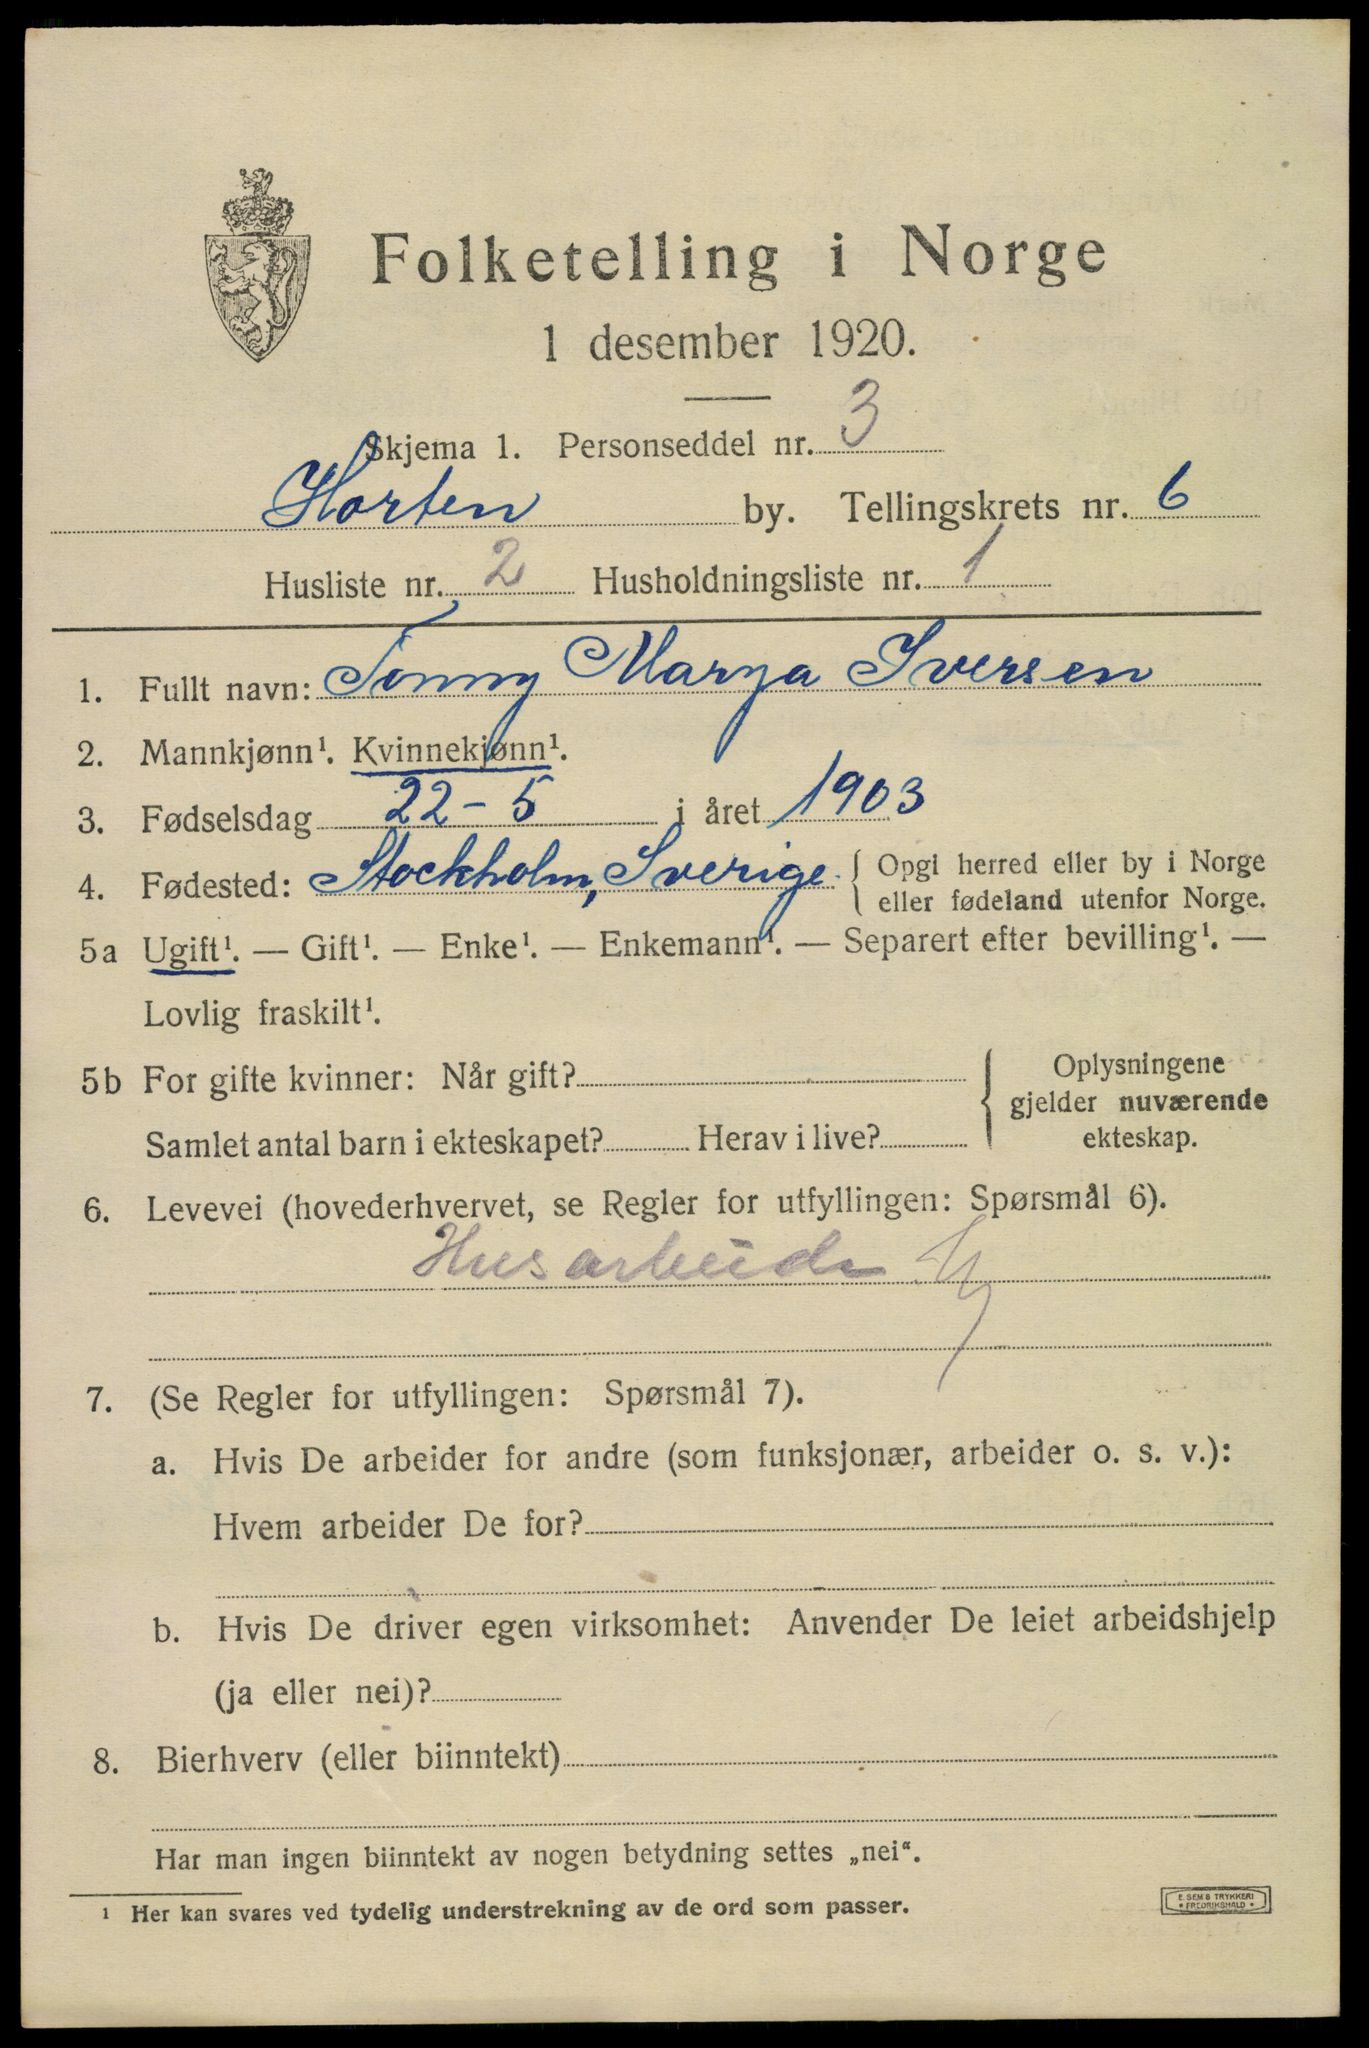 Folketelling i Norge
1 desember 1920.
Skjema 1. Personseddel nr. 3
Horten by. Tellingskrets nr. 6
Husliste nr. 2 Husholdningsliste nr. 1
1. Fullt navn: Tonny Marya Iversen
2. Mannkjønn¹. Kvinnekjønn¹.
3. Fødselsdag 22-5 i året 1903
4. Fødested: Stockholm, Sverige. { Opgi herred eller by i Norge
eller fødeland utenfor Norge.
5a Ugift¹. — Gift¹. — Enke¹. — Enkemann¹. — Separert efter bevilling¹. —
Lovlig fraskilt¹.
5b For gifte kvinner: Når gift? { Oplysningene
gjelder nuværende
Samlet antal barn i ekteskapet? Herav i live? ekteskap.
6. Levevei (hovederhvervet, se Regler for utfyllingen: Spørsmål 6).
Husarbeide
7. (Se Regler for utfyllingen: Spørsmål 7).
a. Hvis De arbeider for andre (som funksjonær, arbeider o. s. v.):
Hvem arbeider De for?
b. Hvis De driver egen virksomhet: Anvender De leiet arbeidshjelp
(ja eller nei)?
8. Bierhverv (eller biinntekt)
Har man ingen biinntekt av nogen betydning settes „nei“.
¹ Her kan svares ved tydelig understrekning av de ord som passer.
E. SEMS TRYKKERI
* FREDRIKSHALD *